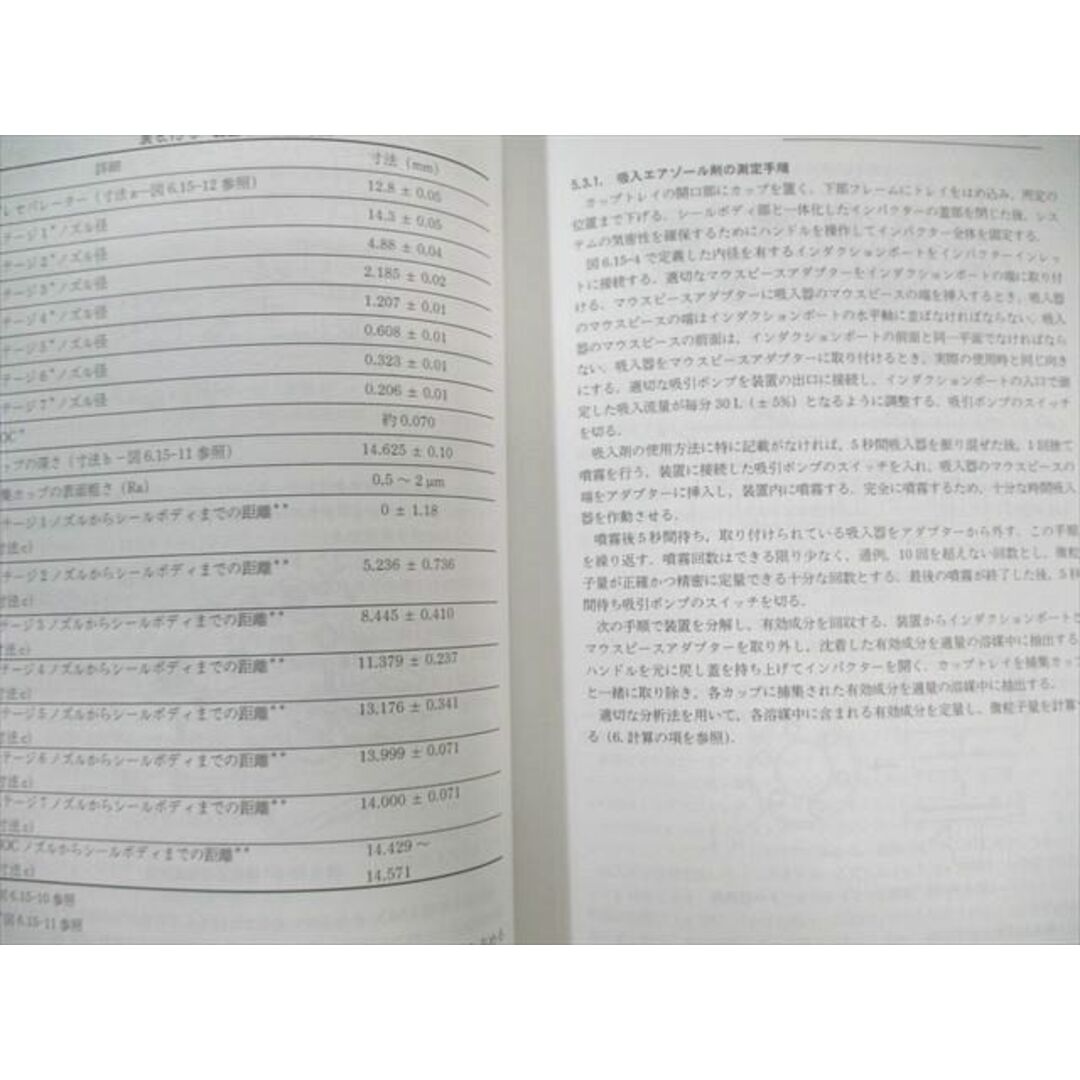 詳細 寸法 (mm)
プレセパレーター (寸法a－図6.15-12参照) 12.8 ± 0.05
テージ1*ノズル径 14.3 ± 0.05
テージ2*ノズル径 4.88 ± 0.04
テージ3*ノズル径 2.185 ± 0.02
テージ4*ノズル径 1.207 ± 0.01
テージ5*ノズル径 0.608 ± 0.01
テージ6*ノズル径 0.323 ± 0.01
テージ7*ノズル径 0.206 ± 0.01
OC* 約0.070
ップの深さ (寸法b－図6.15-11参照) 14.625 ± 0.10
集カップの表面粗さ (Ra) 0.5 ～ 2 μm
テージ1ノズルからシールボディまでの距離** 0 ± 1.18
寸法c)
テージ2ノズルからシールボディまでの距離** 5.236 ± 0.736
寸法c)
テージ3ノズルからシールボディまでの距離** 8.445 ± 0.410
寸法c)
テージ4ノズルからシールボディまでの距離** 11.379 ± 0.237
寸法c)
テージ5ノズルからシールボディまでの距離** 13.176 ± 0.341
寸法c)
テージ6ノズルからシールボディまでの距離** 13.999 ± 0.071
寸法c)
テージ7ノズルからシールボディまでの距離** 14.000 ± 0.071
寸法c)
OCノズルからシールボディまでの距離** 14.429 ～
寸法c) 14.571
図6.15-10参照
図6.15-11参照
5.3.1. 吸入エアゾール剤の測定手順
カップトレイの開口部にカップを置く．下部フレームにトレイをはめ込み，所定の
位置まで下げる．シールボディ部と一体化したインパクターの蓋部を閉じた後，シス
テムの気密性を確保するためにハンドルを操作してインパクター全体を固定する．
図6.15-4で定義した内径を有するインダクションポートをインパクターインレッ
トに接続する．適切なマウスピースアダプターをインダクションポートの端に取り付
ける．マウスピースアダプターに吸入器のマウスピースの端を挿入するとき，吸入器
のマウスピースの端はインダクションポートの水平軸に並ばなければならない．吸入
器のマウスピースの前面は，インダクションポートの前面と同一平面でなければなら
ない．吸入器をマウスピースアダプターに取り付けるとき，実際の使用時と同じ向き
にする．適切な吸引ポンプを装置の出口に接続し，インダクションポートの入口で測
定した吸入流量が毎分30 L (±5%) となるように調整する．吸引ポンプのスイッチ
を切る．
吸入剤の使用方法に特に記載がなければ，5秒間吸入器を振り混ぜた後，1回捨て
噴霧を行う．装置に接続した吸引ポンプのスイッチを入れ，吸入器のマウスピースの
端をアダプターに挿入し，装置内に噴霧する．完全に噴霧するため，十分な時間吸入
器を作動させる．
噴霧後5秒間待ち，取り付けられている吸入器をアダプターから外す．この手順
を繰り返す．噴霧回数はできる限り少なく，通例，10回を超えない回数とし，微粒
子量が正確かつ精密に定量できる十分な回数とする．最後の噴霧が終了した後，5秒
間待ち吸引ポンプのスイッチを切る．
次の手順で装置を分解し，有効成分を回収する．装置からインダクションポートと
マウスピースアダプターを取り外し，沈着した有効成分を適量の溶媒中に抽出する．
ハンドルを元に戻し蓋を持ち上げてインパクターを開く．カップトレイを捕集カップ
と一緒に取り除き，各カップに捕集された有効成分を適量の溶媒中に抽出する．
適切な分析法を用いて，各溶媒中に含まれる有効成分を定量し，微粒子量を計算す
る (6. 計算の項を参照)．